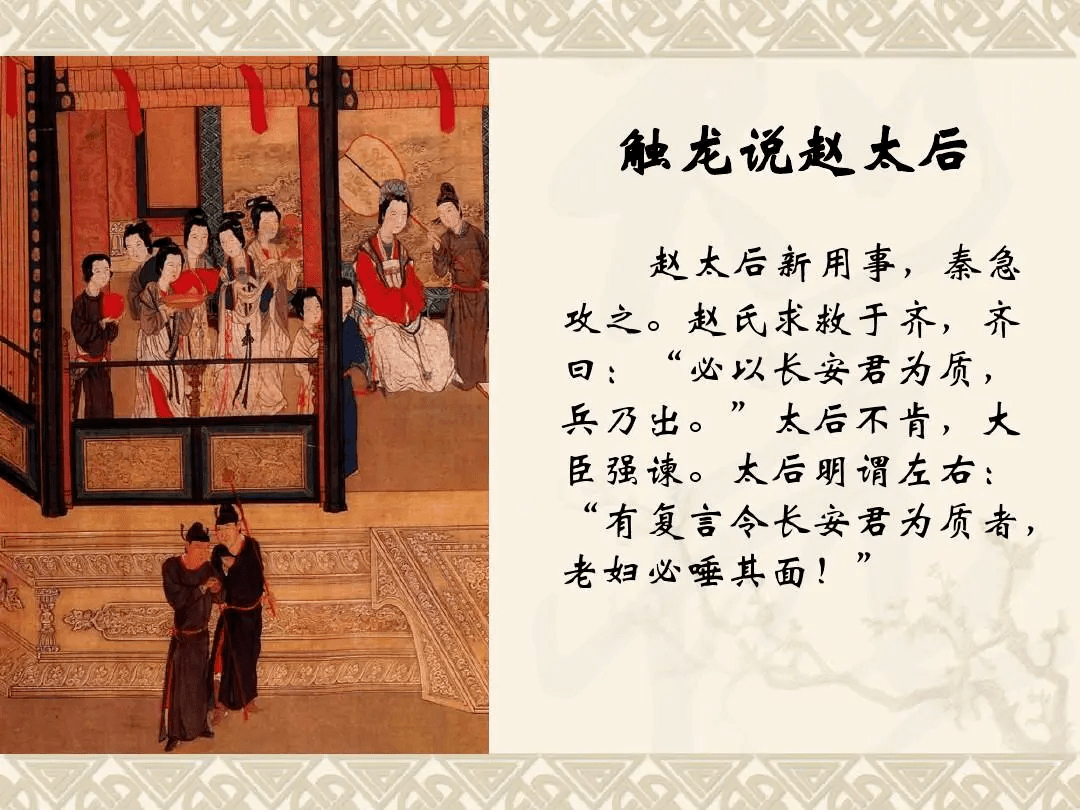 触龙说赵太后
赵太后新用事，秦急
攻之。赵氏求救于齐，齐
曰：“必以长安君为质，
兵乃出。”太后不肯，大
臣强谏。太后明谓左右：
“有复言令长安君为质者，
老妇必唾其面！”